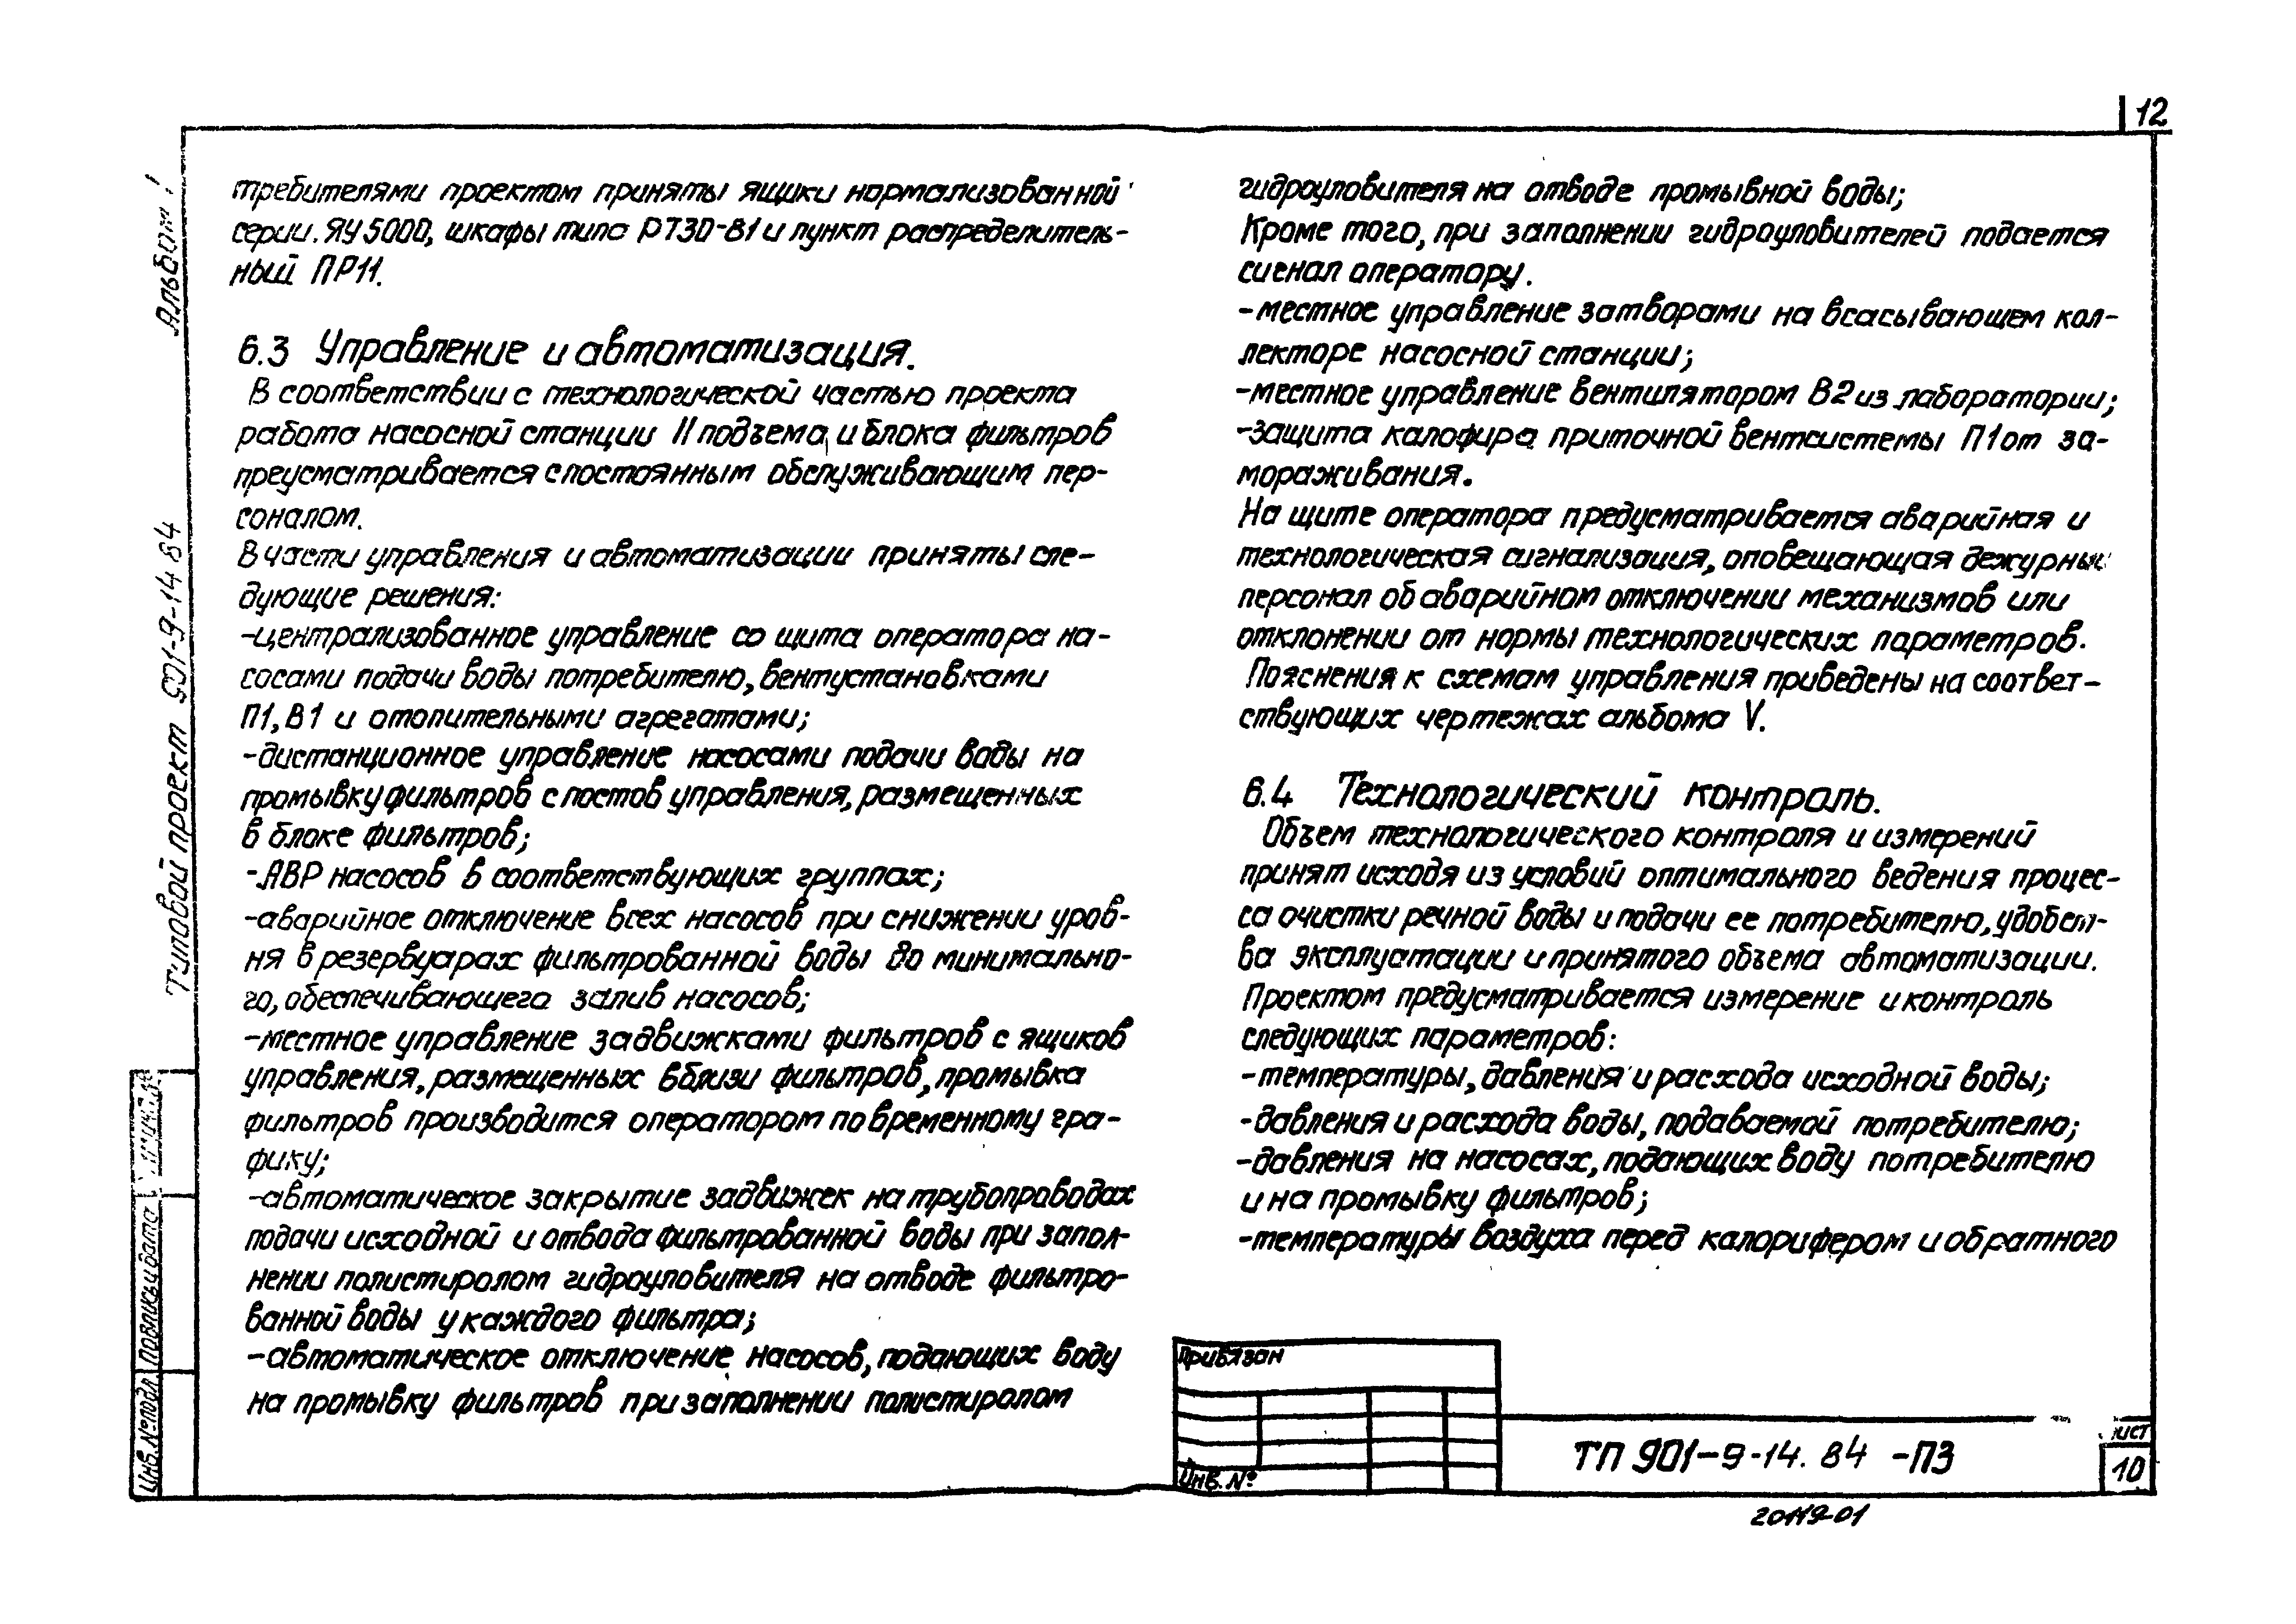 12
требителями проектом приняты ящики нормализованной
серии ЯУ5000, шкафы типа РТ30-81 и пункт распределитель-
ный ПР11.
6.3 Управление и автоматизация.
В соответствии с технологической частью проекта
работа насосной станции II подъема и блока фильтров
преусматривается с постоянным обслуживающим пер-
соналом.
В части управления и автоматизации приняты сле-
дующие решения:
-централизованное управление со щита оператора на-
сосами подачи воды потребителю, вентустановками
П1, В1 и отопительными агрегатами;
-дистанционное управление насосами подачи воды на
промывку фильтров с постов управления, размещенных
в блоке фильтров;
-АВР насосов в соответствующих группах;
-аварийное отключение всех насосов при снижении уров-
ня в резервуарах фильтрованной воды до минимально-
го, обеспечивающего залив насосов;
-местное управление задвижками фильтров с ящиков
управления, размещенных вблизи фильтров, промывка
фильтров производится оператором по временному гра-
фику;
-автоматическое закрытие задвижек на трубопроводах
подачи исходной и отвода фильтрованной воды при запол-
нении полистиролом гидроуловителя на отводе фильтро-
ванной воды у каждого фильтра;
-автоматическое отключение насосов, подающих воду
на промывку фильтров при заполнении полистиролом
гидроуловителя на отводе промывной воды;
Кроме того, при заполнении гидроуловителей подается
сигнал оператору.
-местное управление затворами на всасывающем кол-
лекторе насосной станции;
-местное управление вентилятором В2 из лаборатории;
-защита калофира приточной вентсистемы П1 от за-
мораживания.
На щите оператора предусматривается аварийная и
технологическая сигнализация, оповещающая дежурный
персонал об аварийном отключении механизмов или
отклонении от нормы технологических параметров.
Пояснения к схемам управления приведены на соответ-
ствующих чертежах альбома V.
6.4 Технологический контроль.
Объем технологического контроля и измерений
принят исходя из условий оптимального ведения процес-
са очистки речной воды и подачи ее потребителю, удобст-
ва эксплуатации и принятого объема автоматизации.
Проектом предусматривается измерение и контроль
следующих параметров:
-температуры, давления и расхода исходной воды;
-давления и расхода воды, подаваемой потребителю;
-давления на насосах, подающих воду потребителю
и на промывку фильтров;
-температуры воздуха перед калорифером и обратного
Альбом I
Типовой проект 901-9-14.84
Подпись и дата
Инв. № подл.
Привязан
Инв. №
ТП 901-9-14.84 -ПЗ
Лист
10
20119-01